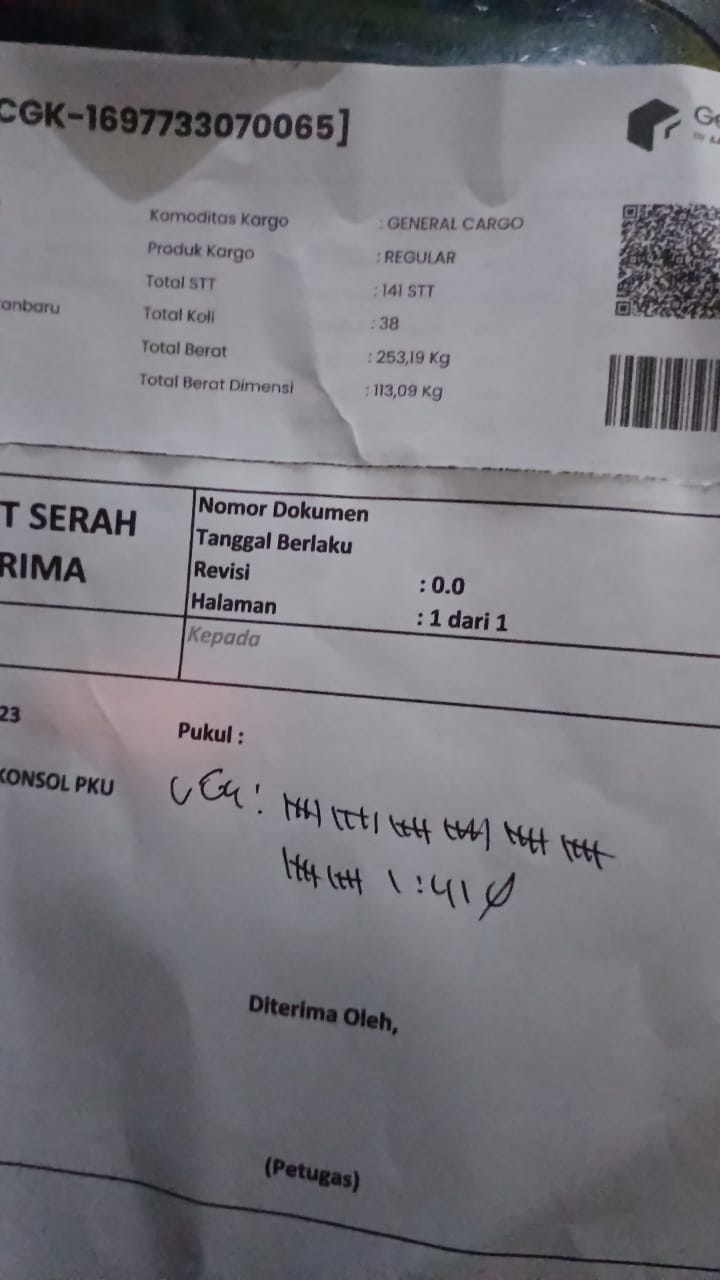 CGK-1697733070065]
Ge
Komoditas Kargo : GENERAL CARGO
Produk Kargo : REGULAR
Total STT : 141 STT
anbaru Total Koli : 38
Total Berat : 253,19 Kg
Total Berat Dimensi : 113,09 Kg
T SERAH
RIMA
Nomor Dokumen
Tanggal Berlaku
Revisi : 0.0
Halaman : 1 dari 1
Kepada
23 Pukul :
KONSOL PKU
1 : 41
Diterima Oleh,
(Petugas)